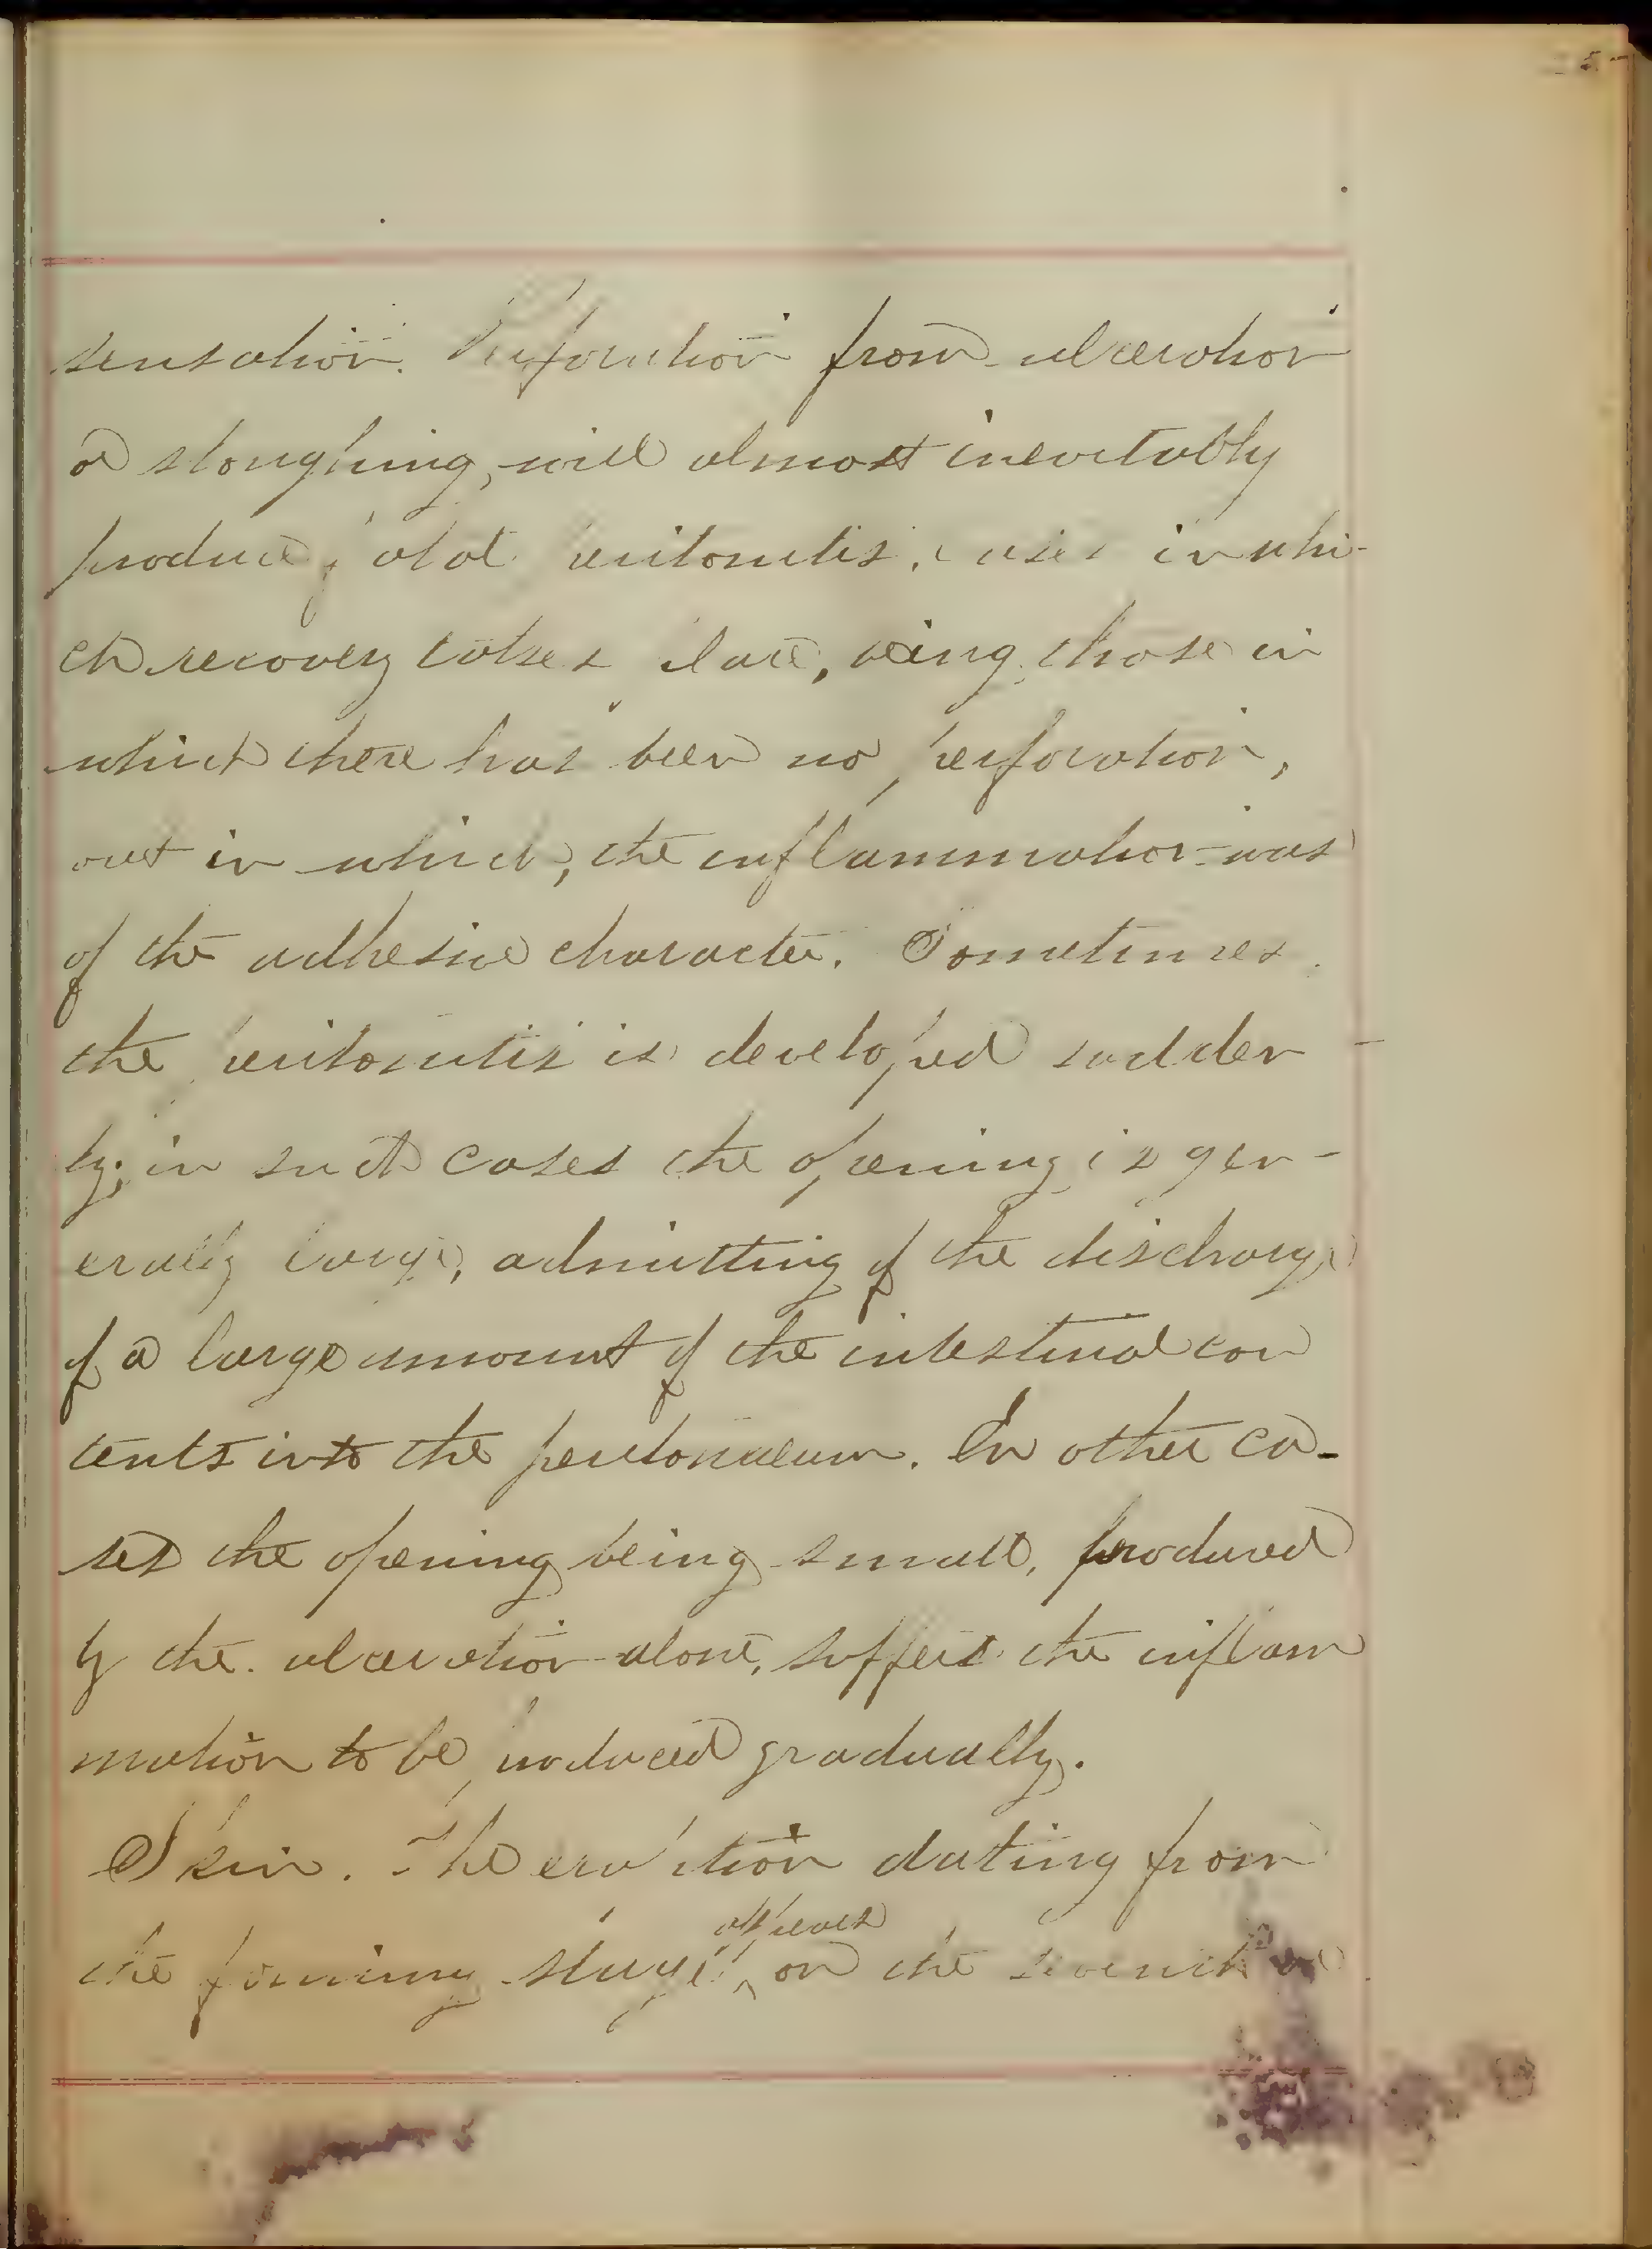 sensation. Perforation from ulceration
or sloughing, will almost inevitably
produce fatal peritonitis, cases in whi-
ch recovery takes place, being those in
which there has been no perforation,
but in which, the inflammation was
of the adhesive character. Sometimes
the peritonitis is developed sudden
ly; in such cases the opening is gen-
erally large, admitting of the discharge
of a large amount of the intestinal con
tents into the peritonaeum. In other ca-
ses the opening being small, produced
by the ulceration alone, suffers the inflam
mation to be produced gradually.
Skin. The eruption dating from
the forming stage, appears on the seventh